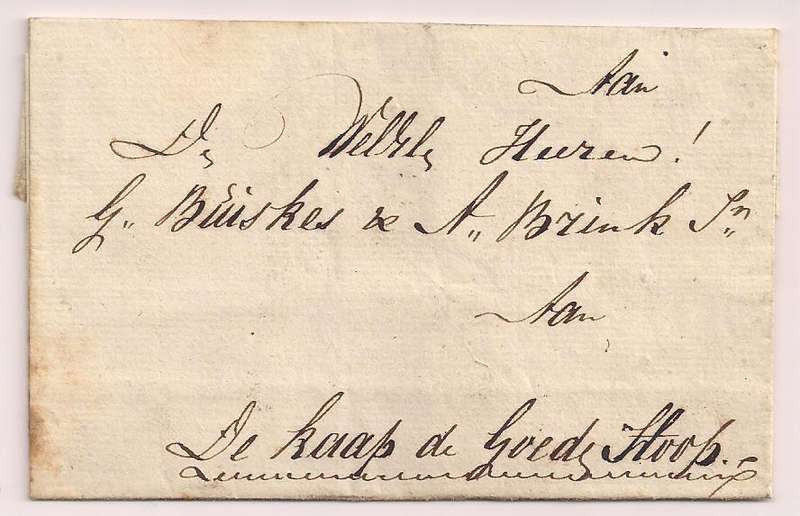 Aan
De WelEdle Heeren!
G,, Büiskes & A,, Brink Jn,,
Aan
De Kaap de Goede Hoop.